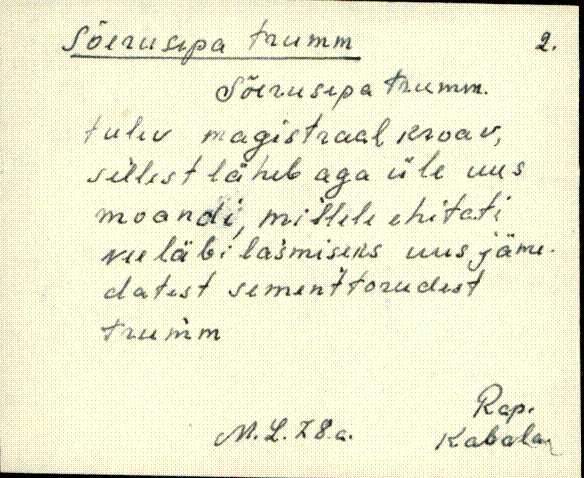 Sõerusepa trumm
2.
Sõerusepa trumm.
tulev magistraal kraav,
sellest läheb aga üle uus
moandi, millele ehitati
vee läbi lasmiseks uus jäme-
datest sementtorudest
trumm
M. L. 78 a.
Rap.
Kabala